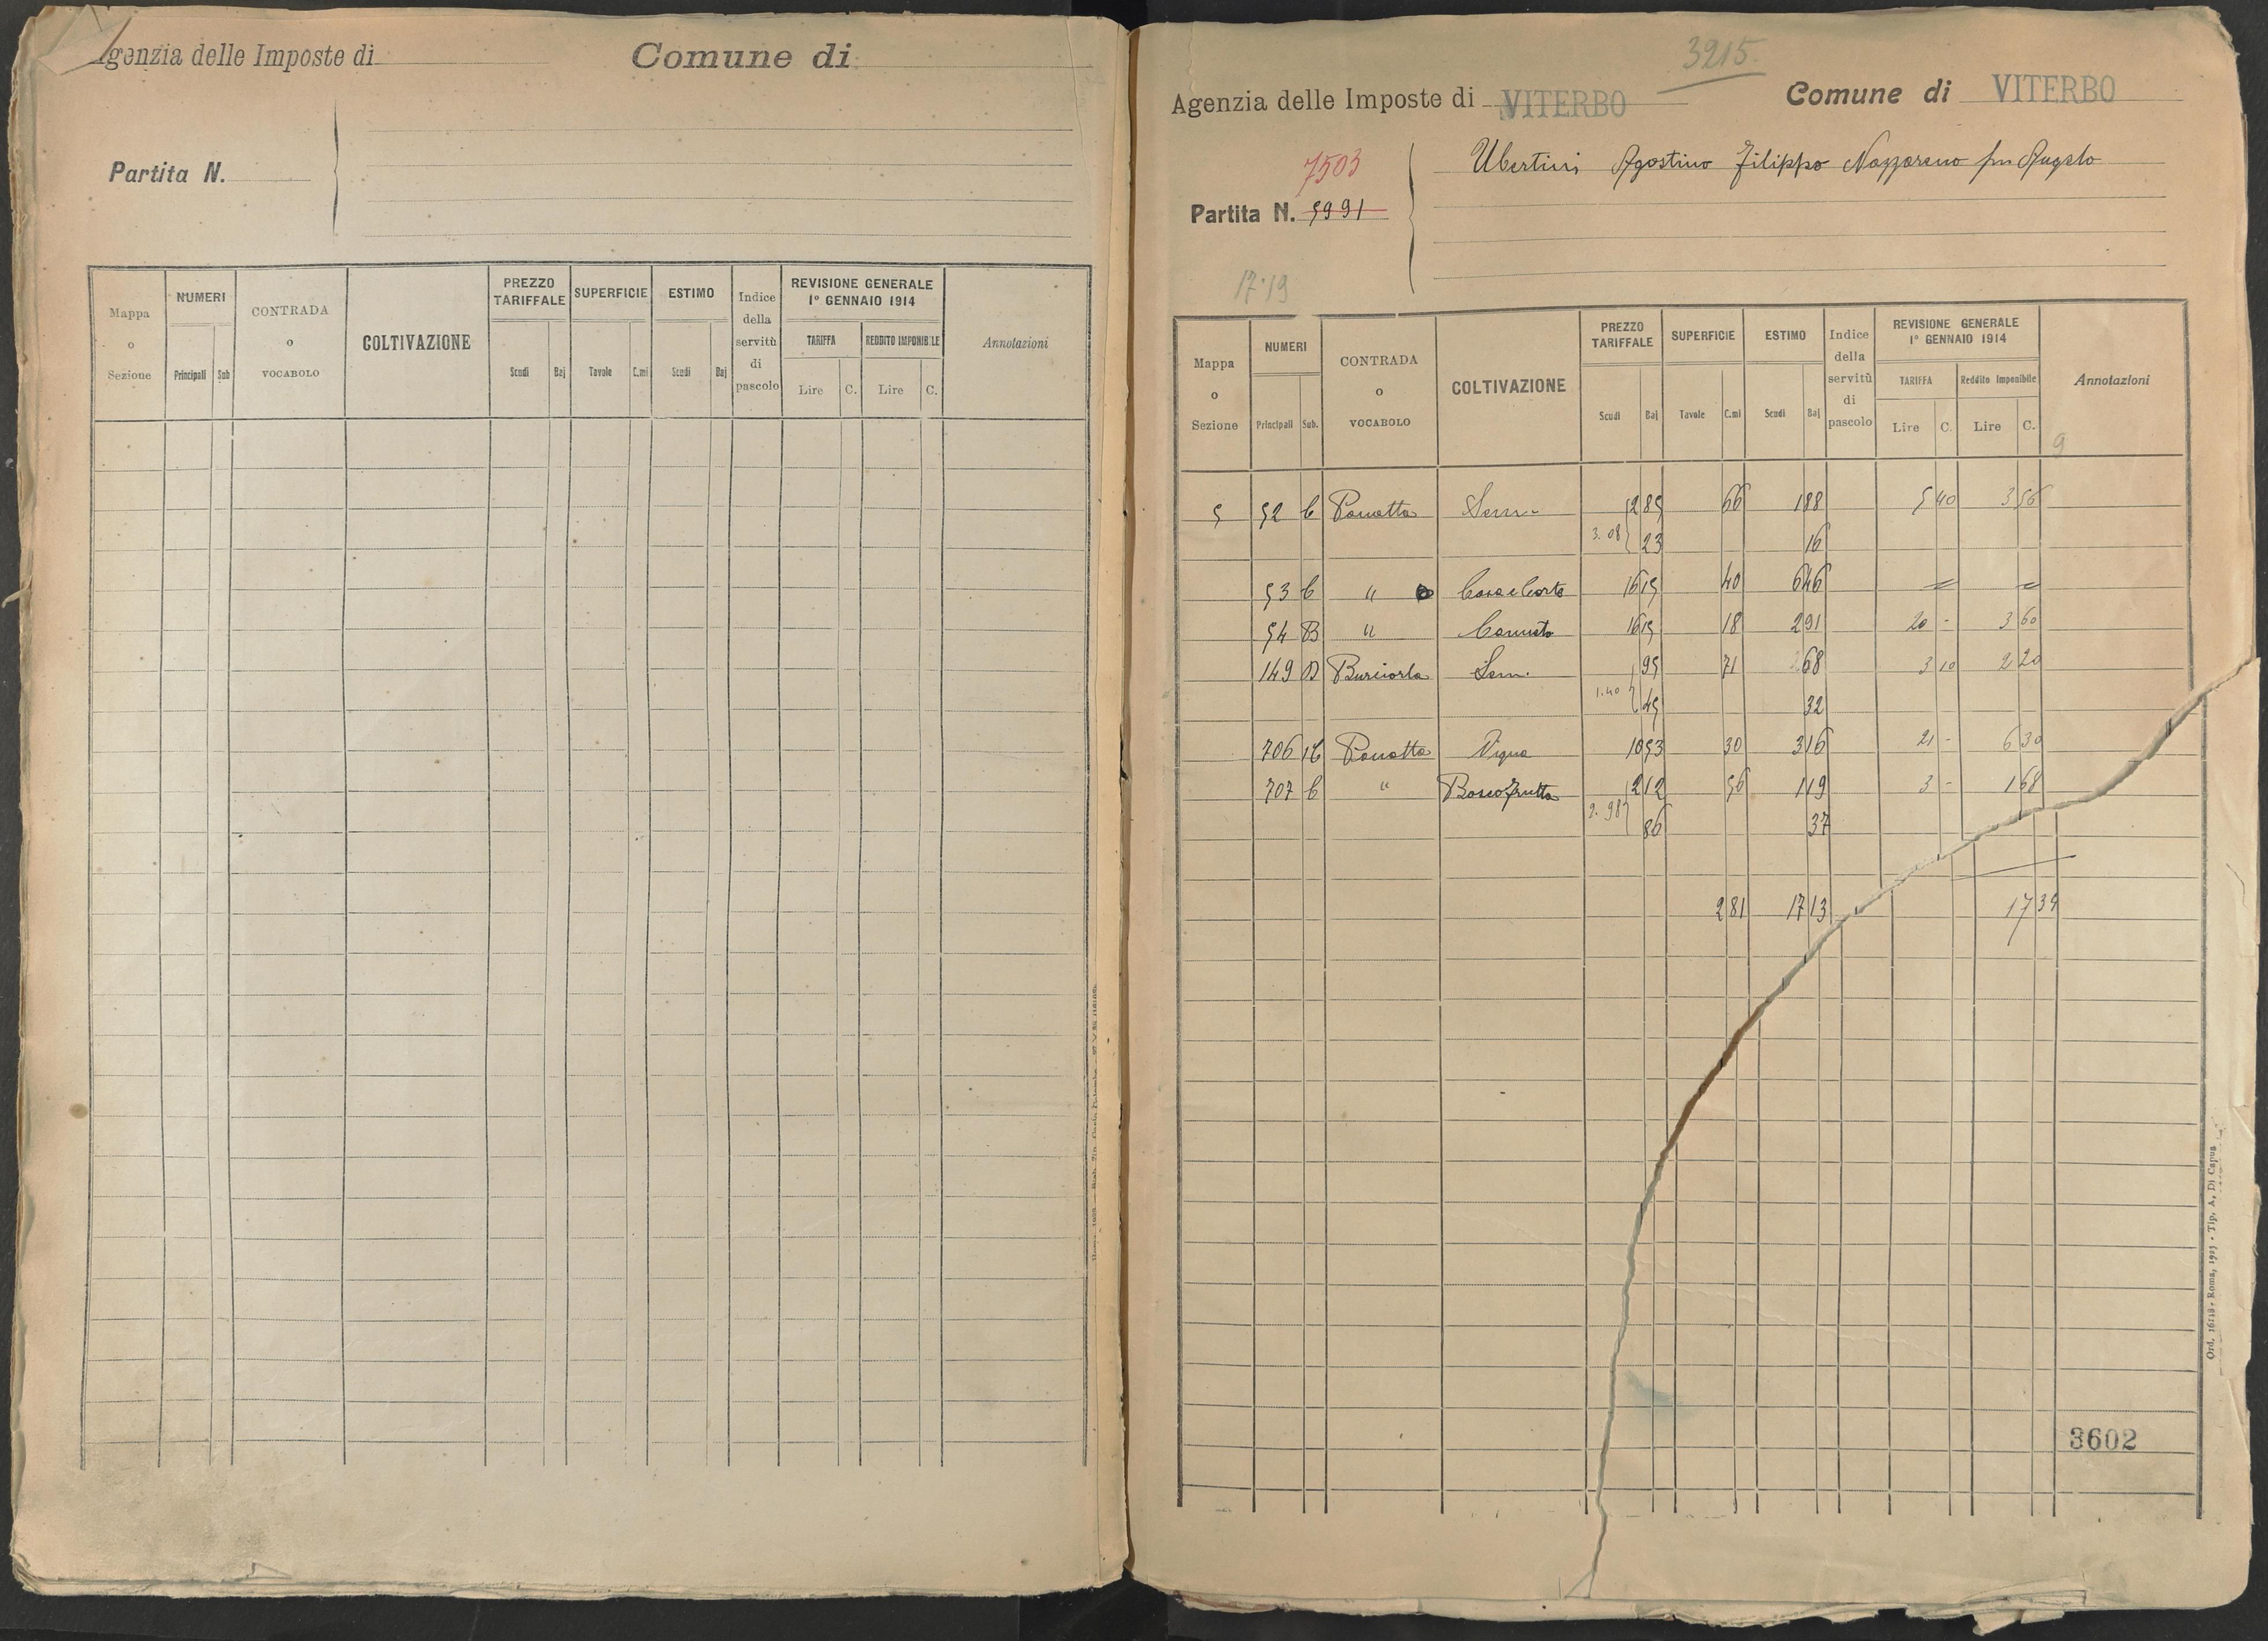 Agenzia delle Imposte di
Comune di
Partita N.
Mappa o Sezione
NUMERI
Principali Sub
CONTRADA o VOCABOLO
COLTIVAZIONE
PREZZO TARIFFALE
Scudi Baj
SUPERFICIE
Tavole C.mi
ESTIMO
Scudi Baj
Indice della servitù di pascolo
REVISIONE GENERALE
1° GENNAIO 1914
TARIFFA
Lire C.
REDDITO IMPONIBILE
Lire C.
Annotazioni
3215.
Agenzia delle Imposte di VITERBO
Comune di VITERBO
7503
Partita N. 5991
Ubertini Agostino Filippo Nazzareno fu Angelo
17.19
Mappa o Sezione
NUMERI
Principali Sub.
CONTRADA o VOCABOLO
COLTIVAZIONE
PREZZO TARIFFALE
Scudi Baj
SUPERFICIE
Tavole C.mi
ESTIMO
Scudi Baj
Indice della servitù di pascolo
REVISIONE GENERALE
1° GENNAIO 1914
TARIFFA
Lire C.
Reddito Imponibile
Lire C.
Annotazioni
9
5 52 C Sem. 2 85 66 1 88 5 40 3 56
3.08 23 16
53 C " Casa e Corte 16 15 40 6 46 = =
54 B " Canneto 16 15 18 2 91 20 - 3 60
149 D Sem. 95 71 68 3 10 2 20
1.40 45 32
706 Vigna 10 53 30 3 16 21 - 6 30
707 C " Bosco frutta 2 12 56 1 19 3 - 1 68
2.98 86 37
2 81 17 13 17 34
3602
Ord. 1618 - Roma, 1923 - Tip. A. Di Capua